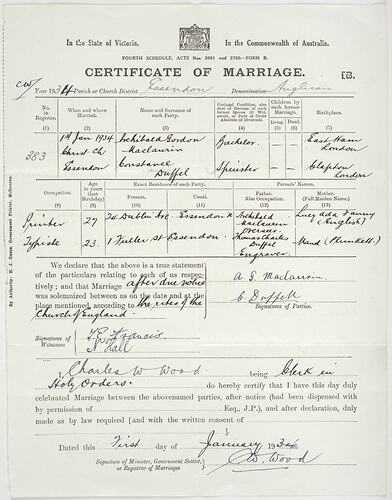 In the State of Victoria. In the Commonwealth of Australia.
FOURTH SCHEDULE, ACTS Nos. 2691 and 2726.—FORM B.
CERTIFICATE OF MARRIAGE. [B.
CW/ Year 1934 Parish or Church District Essendon Denomination Anglican
No. in Register. When and where Married. Name and Surname of each Party. Conjugal Condition, also date of Decease of each former Spouse (if Widowed), or Date of Order Absolute (if Divorced). Children by each former Marriage. Living. Dead. Birthplace.
(1) (2) (3) (4) (5) (6) (7)
383
1st Jan 1934 Archibald Gordon Bachelor. East Ham
Christ Ch Maclaurin London
Essendon Constance Spinster Clapton
Duffel London
Occupation. Age in years (last Birthday) Exact Residence of each Party. Present. Usual. Parents' Names. Father, Also Occupation. Mother (Full Maiden Name).
(8) (9) (10) (11) (12) (13)
Printer 27 Dublin Ave. Essendon N Archibald Maclaurin Lucy Ada Fanny (English)
Typiste 23 1 Fuller St Essendon. Thomas Charles Duffel Engraver. Maud (Plunkett)
By Authority: H. J. Green, Government Printer, Melbourne.
We declare that the above is a true statement
of the particulars relating to each of us respec-
tively; and that Marriage after due notice
was solemnized between us on the date and at the
place mentioned, according to the rites of the
Church of England.
A G Maclaurin
C. Duffell
Signatures of Parties.
Signatures of Witnesses
Francis
Hall
I, Charles W Wood being Clerk in
Holy Orders. do hereby certify that I have this day duly
celebrated Marriage between the abovenamed parties, after notice (had been dispensed with
by permission of Esq., J.P.), and after declaration, duly
made as by law required [and with the written consent of
Dated this First day of January 1934
Signature of Minister, Government Statist,
or Registrar of Marriages
C.W. Wood